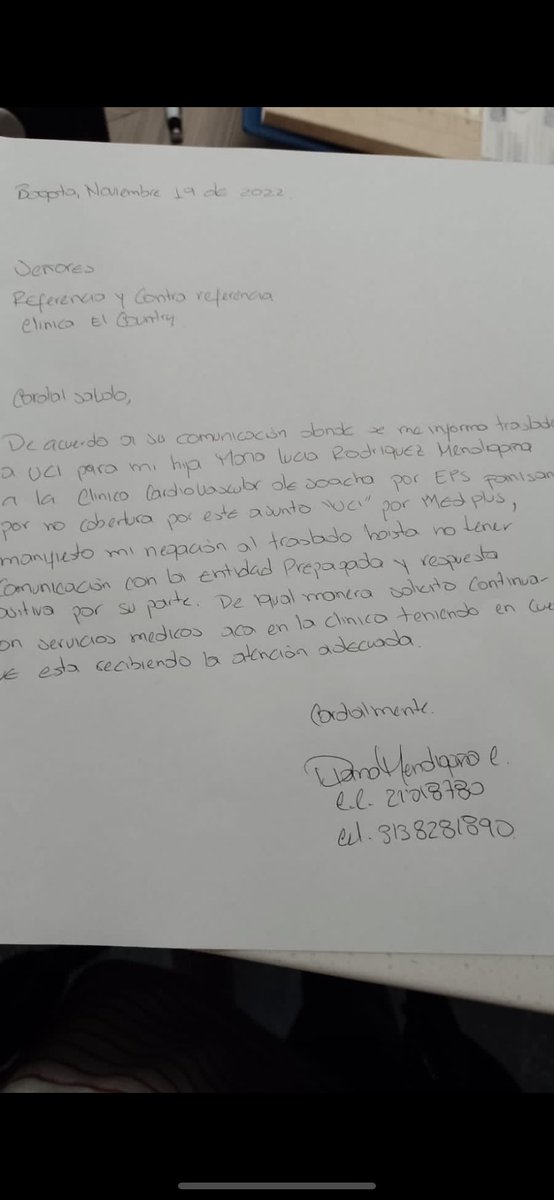 Bogota, Noviembre 19 de 2022.
Señores
Referencia y Contra referencia
Clinica El Country
Cordial saludo,
De acuerdo a su comunicación donde se me informa traslado
a UCI para mi hija Maria Lucia Rodriguez Mendigaña
a la Clinica Cardiovascular de soacha por EPS famisanar
por no cobertura por este asunto "UCI" por Medplus,
manifiesto mi negación al traslado hasta no tener
comunicación con la entidad Prepagada y respuesta
positiva por su parte. De igual manera solicito continua-
on servicios medicos aca en la clinica teniendo en cue
esta recibiendo la atención adecuada.
Cordialmente.
Mendigaña C.
c.c. 21018780
cel. 3138281890